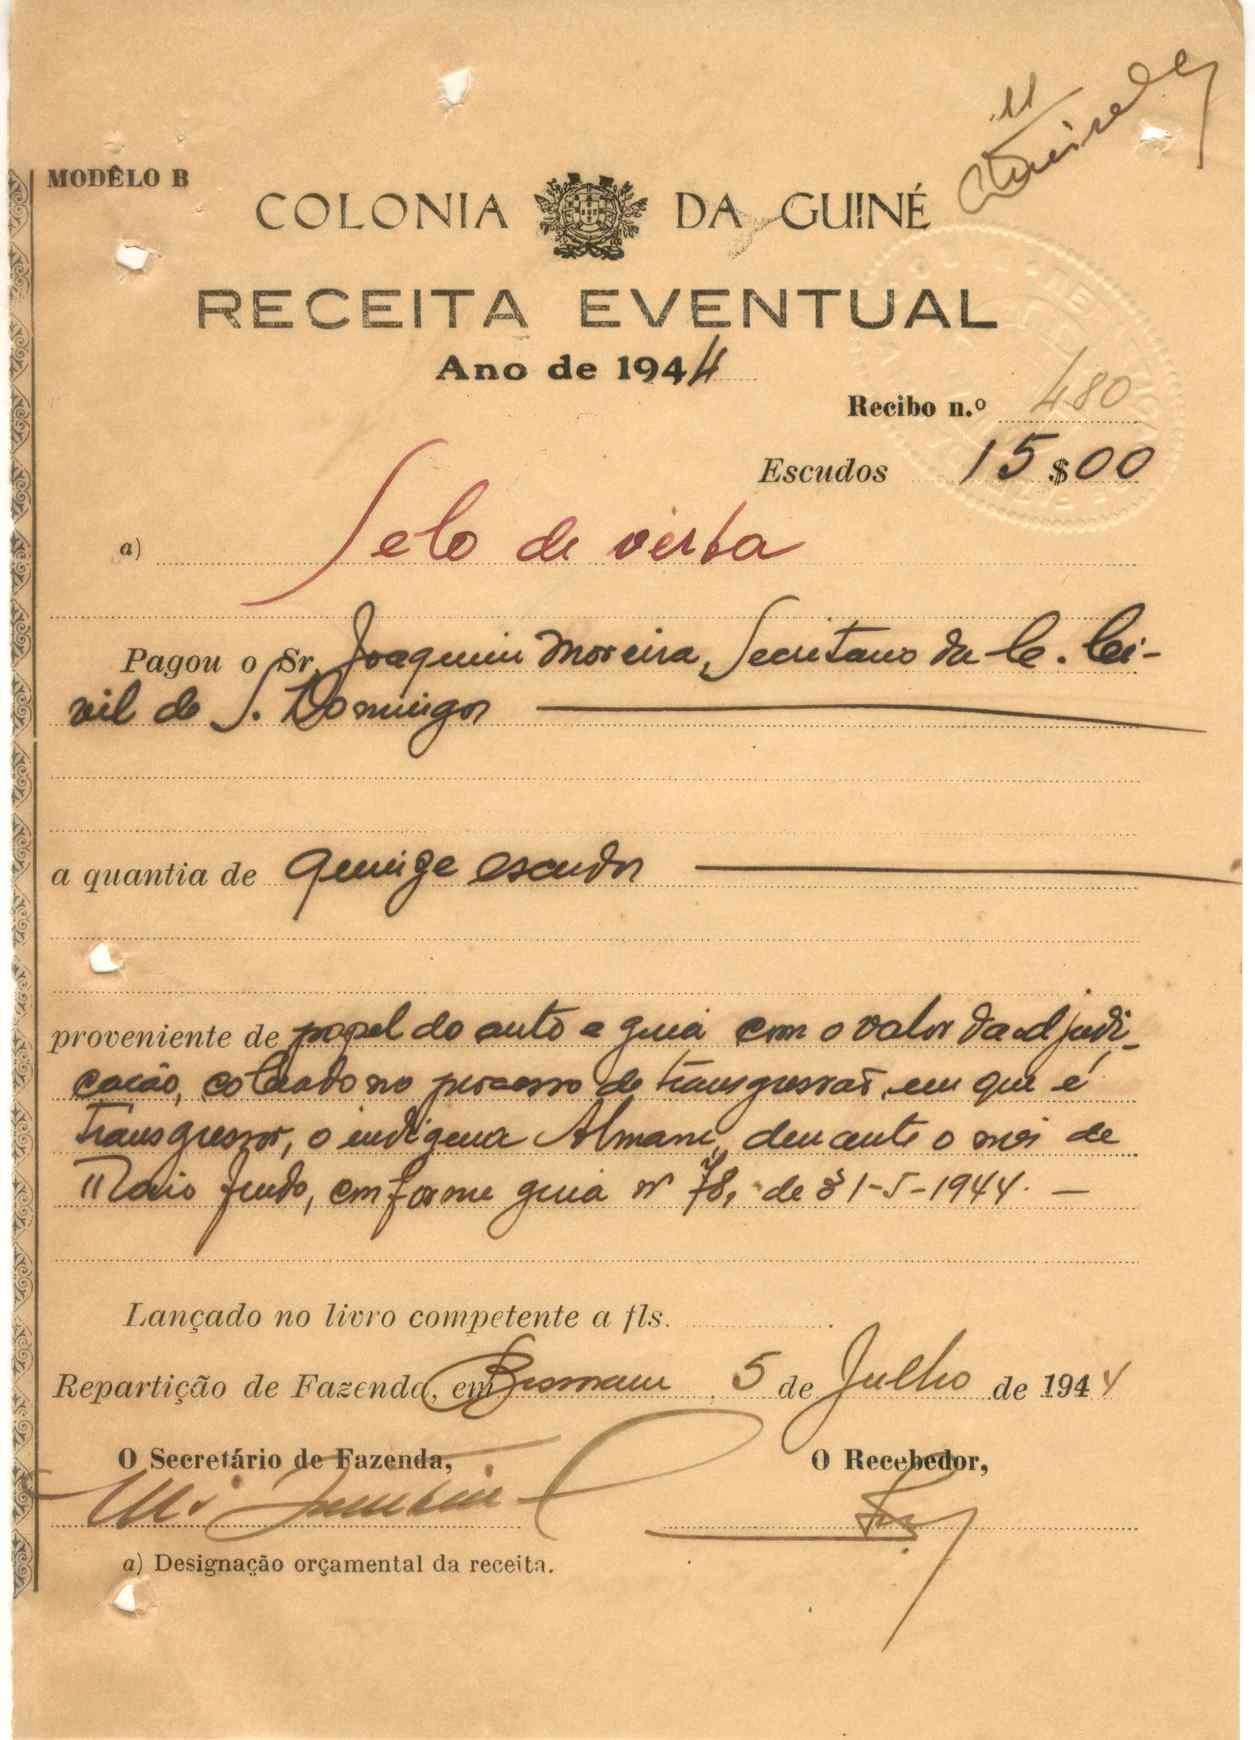 MODÊLO B
COLONIA DA GUINÉ
RECEITA EVENTUAL
Ano de 1944
Recibo n.º 480
Escudos 15$00
a) Selo de verba
Pagou o Sr. Joaquim Moreira, Secretario da C. Ci-
vil de S. Domingos
a quantia de quinze escudos
proveniente de papel do auto e guia com o valor da adjudi-
cação, cobrado no processo de transgressão, em que é
transgressor, o indigena Almami, durante o mês de
Maio findo, conforme guia nº 78, de 31-5-1944.
Lançado no livro competente a fls.
Repartição de Fazenda, em 5 de Julho de 1944
O Secretário de Fazenda,
O Recebedor,
a) Designação orçamental da receita.